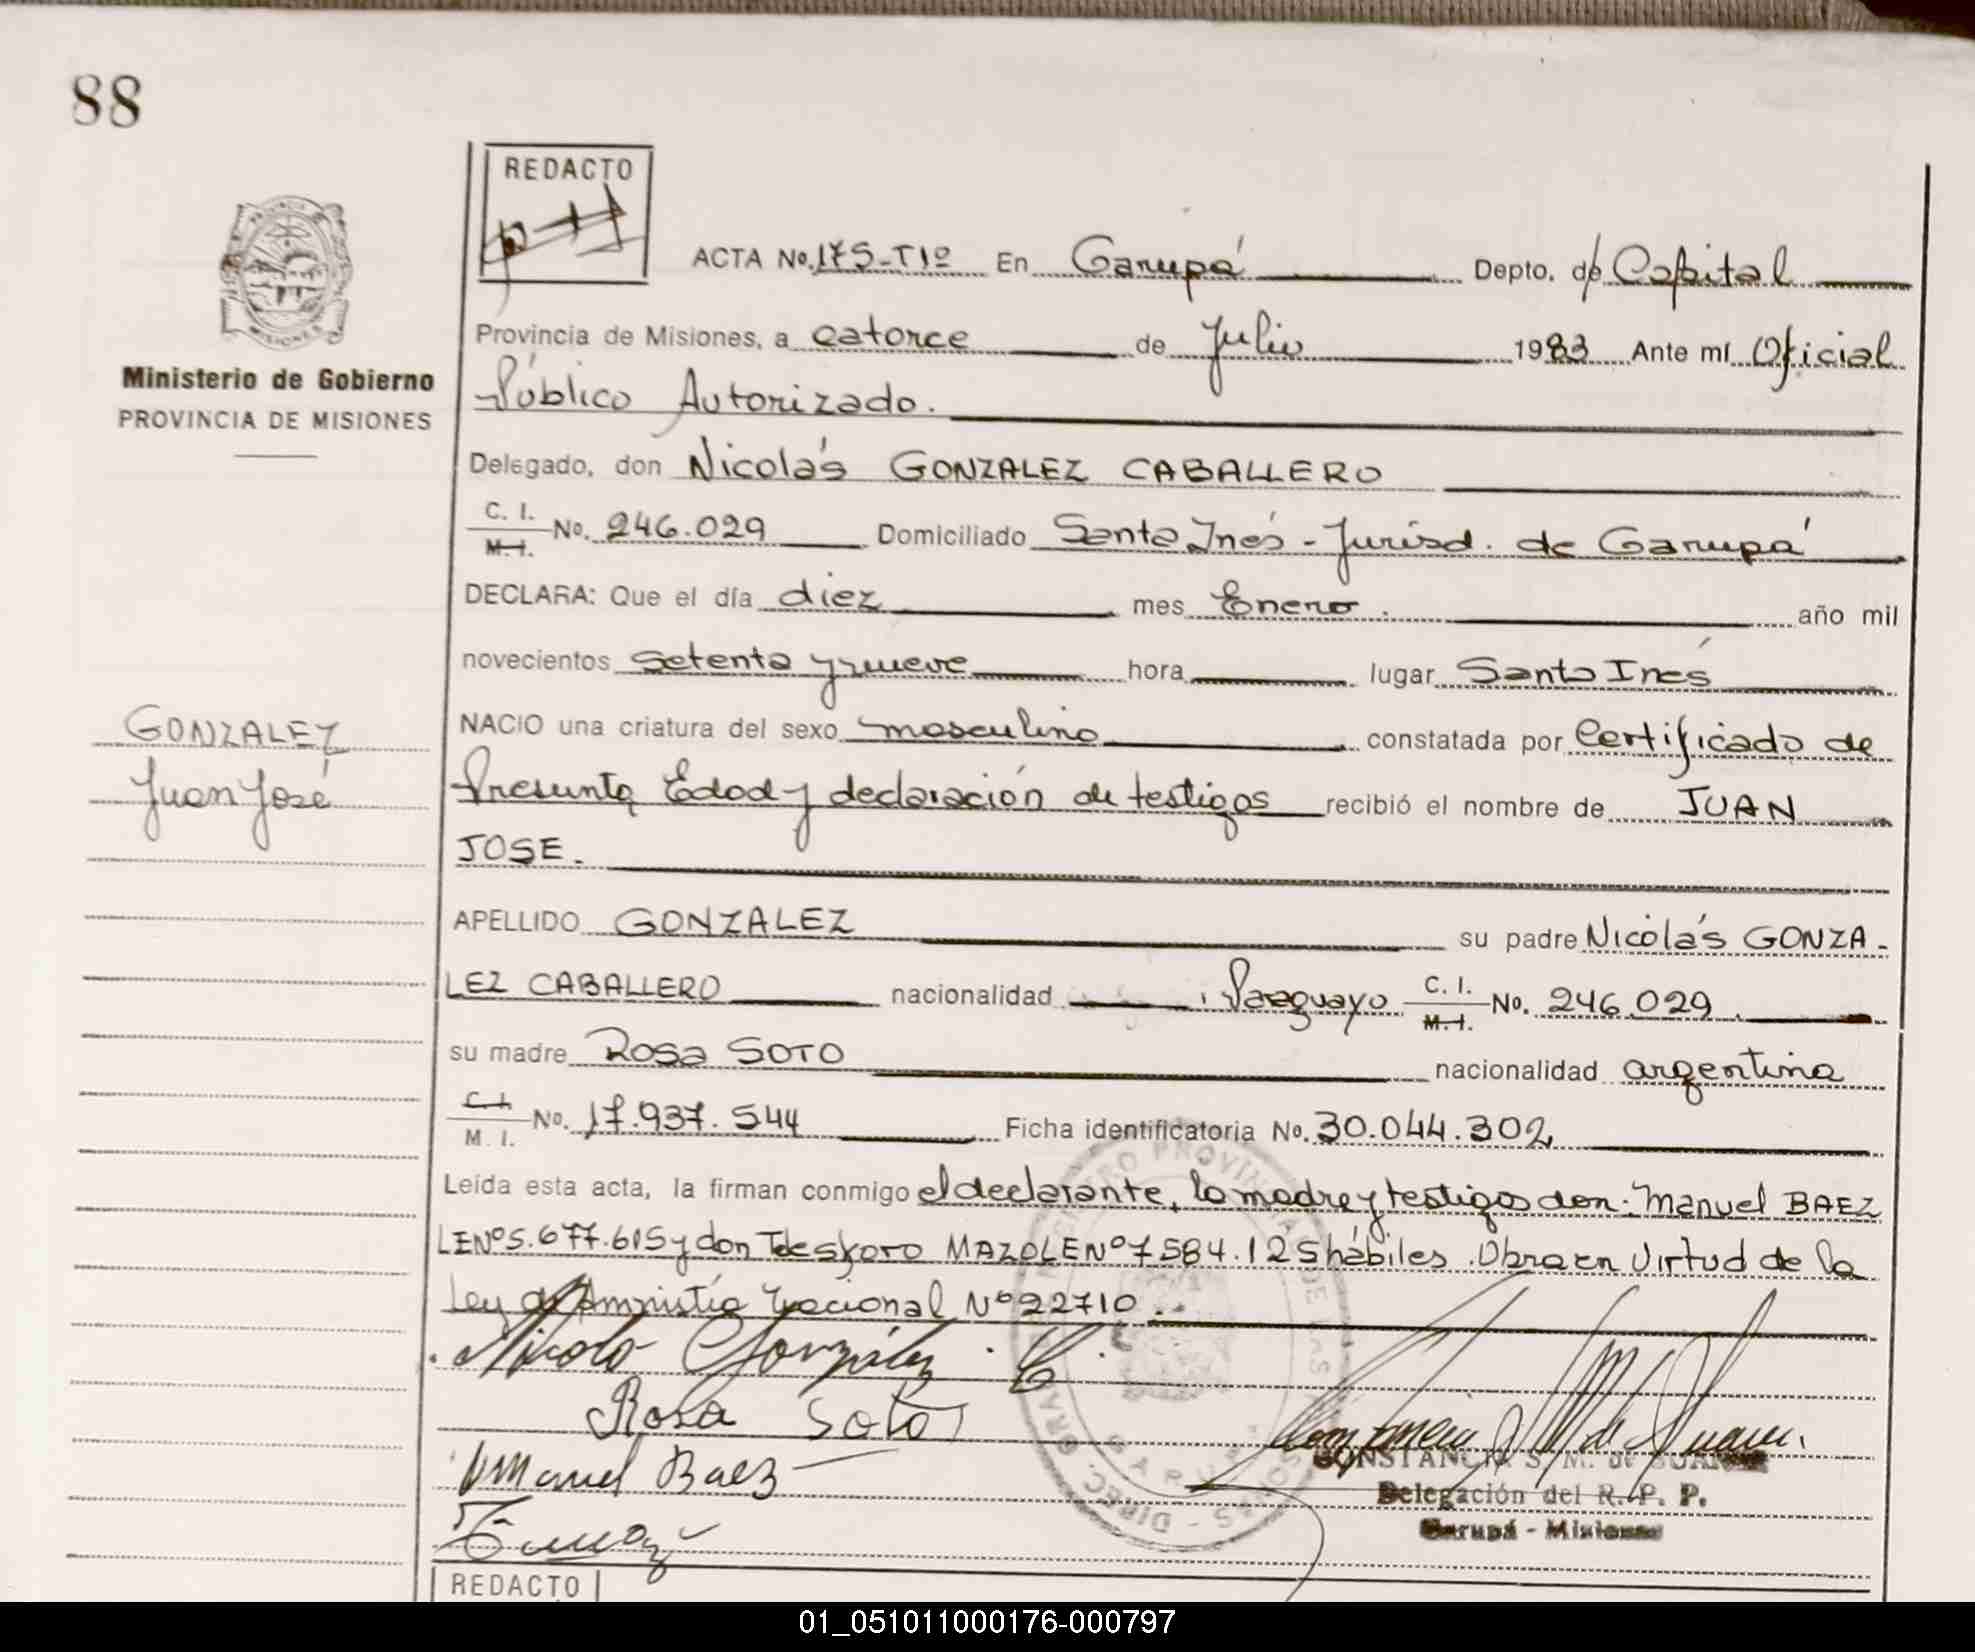 88
REDACTO
ACTA No. 175-T1º En Garupá Depto. de Capital
Provincia de Misiones, a catorce de Julio 1983 Ante mí Oficial
Ministerio de Gobierno
PROVINCIA DE MISIONES
Público Autorizado.
Delegado, don Nicolás GONZALEZ CABALLERO
C. I. M. I. No. 246.029 Domiciliado Santa Inés - Jurisd. de Garupá
DECLARA: Que el día diez mes Enero. año mil
novecientos setenta y nueve hora lugar Santa Inés
GONZALEZ
Juan José
NACIO una criatura del sexo masculino constatada por Certificado de
Presunta Edad y declaración de testigos recibió el nombre de JUAN
JOSE.
APELLIDO GONZALEZ su padre Nicolás GONZA-
LEZ CABALLERO nacionalidad Paraguayo C. I. M. I. No. 246.029
su madre Rosa SOTO nacionalidad argentina
C. I. M. I. No. 17.937.544 Ficha identificatoria No. 30.044.302
Leída esta acta, la firman conmigo el declarante, la madre y testigos don: Manuel BAEZ
LENº5.677.615 y don Teleskoro MAZOLENº7584.125 hábiles. Obra en Virtud de la
Ley de Amnistía Nacional Nº22710.
Nicolá González C.
Rosa Soto
Manuel Baez
CONSTANCIA S. M. de
Delegación del R. P. P.
Garupá - Misiones
REDACTO
01_051011000176-000797